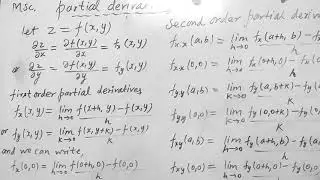 MSC.
partial deriva
let z = f(x,y)
∂z/∂x = ∂f(x,y)/∂x = fx(x,y)
or ∂z/∂y = ∂f(x,y)/∂y = fy(x,y)
first order partial derivatives
fx(x,y) = lim h→0 f(x+h, y) - f(x,y) / h
or fy(x,y) = lim k→0 f(x,y+k) - f(x,y) / k
and we can write,
fx(0,0) = lim h→0 f(0+h,0) - f(0,0) / h
Second order partial deriv
fxx(a,b) = lim h→0 fx(a+h, b) - f
fxx(0,0) = lim h→0 fx(0+h,0) - f
fyy(a,b) = lim k→0 fy(a,b+k) - f
fyy(0,0) = lim k→0 fy(0,0+k) - f / k
fxy(a,b) = lim h→0 fy(a+h,b) - f / h
fxy(0,0) = lim h→0 fy(0+h,0) - f